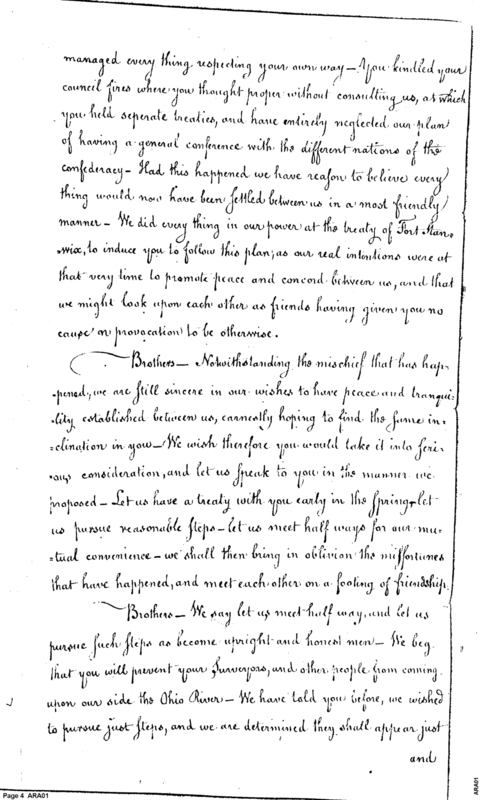 managed every thing respecting your own way – You kindled your
council fires where you thought proper without consulting us, at which
you held seperate treaties, and have entirely neglected our plan
of having a general conference with the different nations of the
confederacy – Had this happened we have reason to believe every
thing would now have been settled between us in a most friendly
manner – We did every thing in our power at the treaty of Fort Stan=
=wix, to induce you to follow this plan; as our real intentions were at
that very time to promote peace and concord between us, and that
we might look upon each other as friends having given you no
cause or provocation to be otherwise.
Brothers – Notwithstanding the mischief that has hap=
=pened, we are still sincere in our wishes to have peace and tranqui=
=lity established between us, earnestly hoping to find the same in=
=clination in you – We wish therefore you would take it into seri=
=ous consideration, and let us speak to you in the manner we
proposed – Let us have a treaty with you early in the Spring – let
us pursue reasonable steps – let us meet half ways for our mu=
=tual convenience – we shall then bring in oblivion the misfortunes
that have happened, and meet each other on a footing of friendship.
Brothers – We say let us meet half way, and let us
pursue such steps as become upright and honest men – We beg
that you will prevent your Surveyors, and other people from coming
upon our side the Ohio River – We have told you before, we wished
to pursue just steps, and we are determined they shall appear just
and
Page 4 ARA01
ARA01